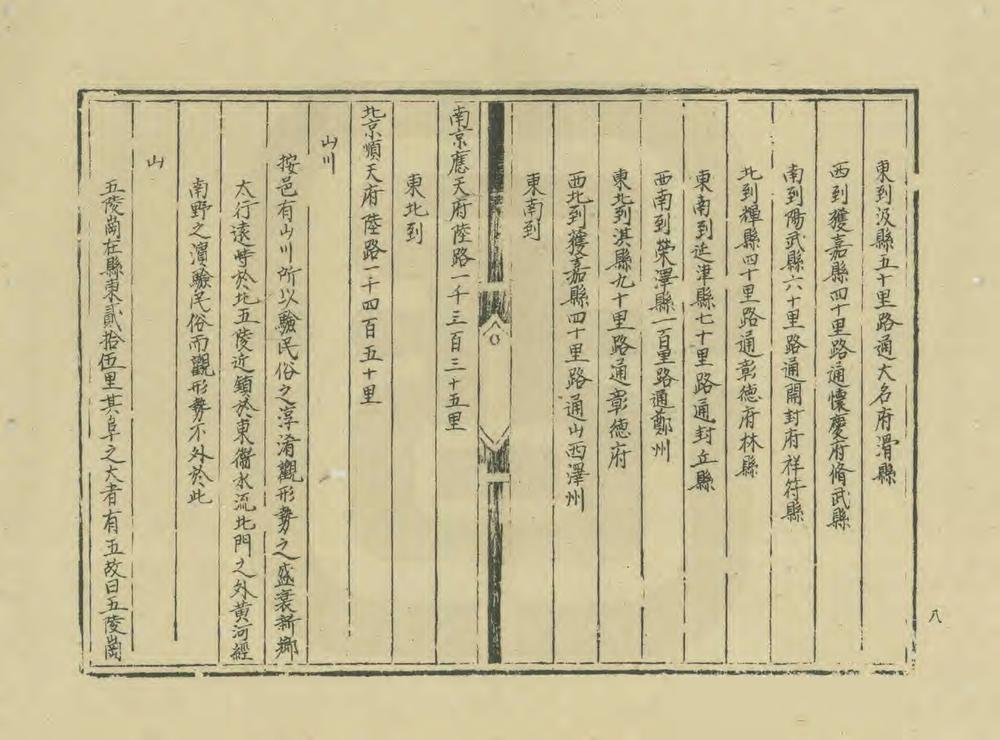 東到汲縣五十里路通大名府滑縣
西到獲嘉縣四十里路通懷慶府脩武縣
南到陽武縣六十里路通開封府祥符縣
北到輝縣四十里路通彰德府林縣
東南到延津縣七十里路通封丘縣
西南到榮澤縣一百里路通鄭州
東北到淇縣九十里路通彰德府
西北到獲嘉縣四十里路通山西澤州
東南到
南京應天府陸路一千三百三十五里
東北到
北京順天府陸路一千四百五十里
山川
按邑有山川所以驗民俗之淳淆觀形勢之盛衰新鄉
太行遠峙於北五陵近鎮於東衛水流北門之外黃河經
南野之濱驗民俗而觀形勢不外於此
山
五陵崗在縣東貳拾伍里其阜之大者有五故曰五陵崗
八